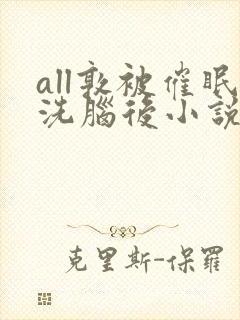 all敦被催眠
洗腦後小說
克里斯-保羅